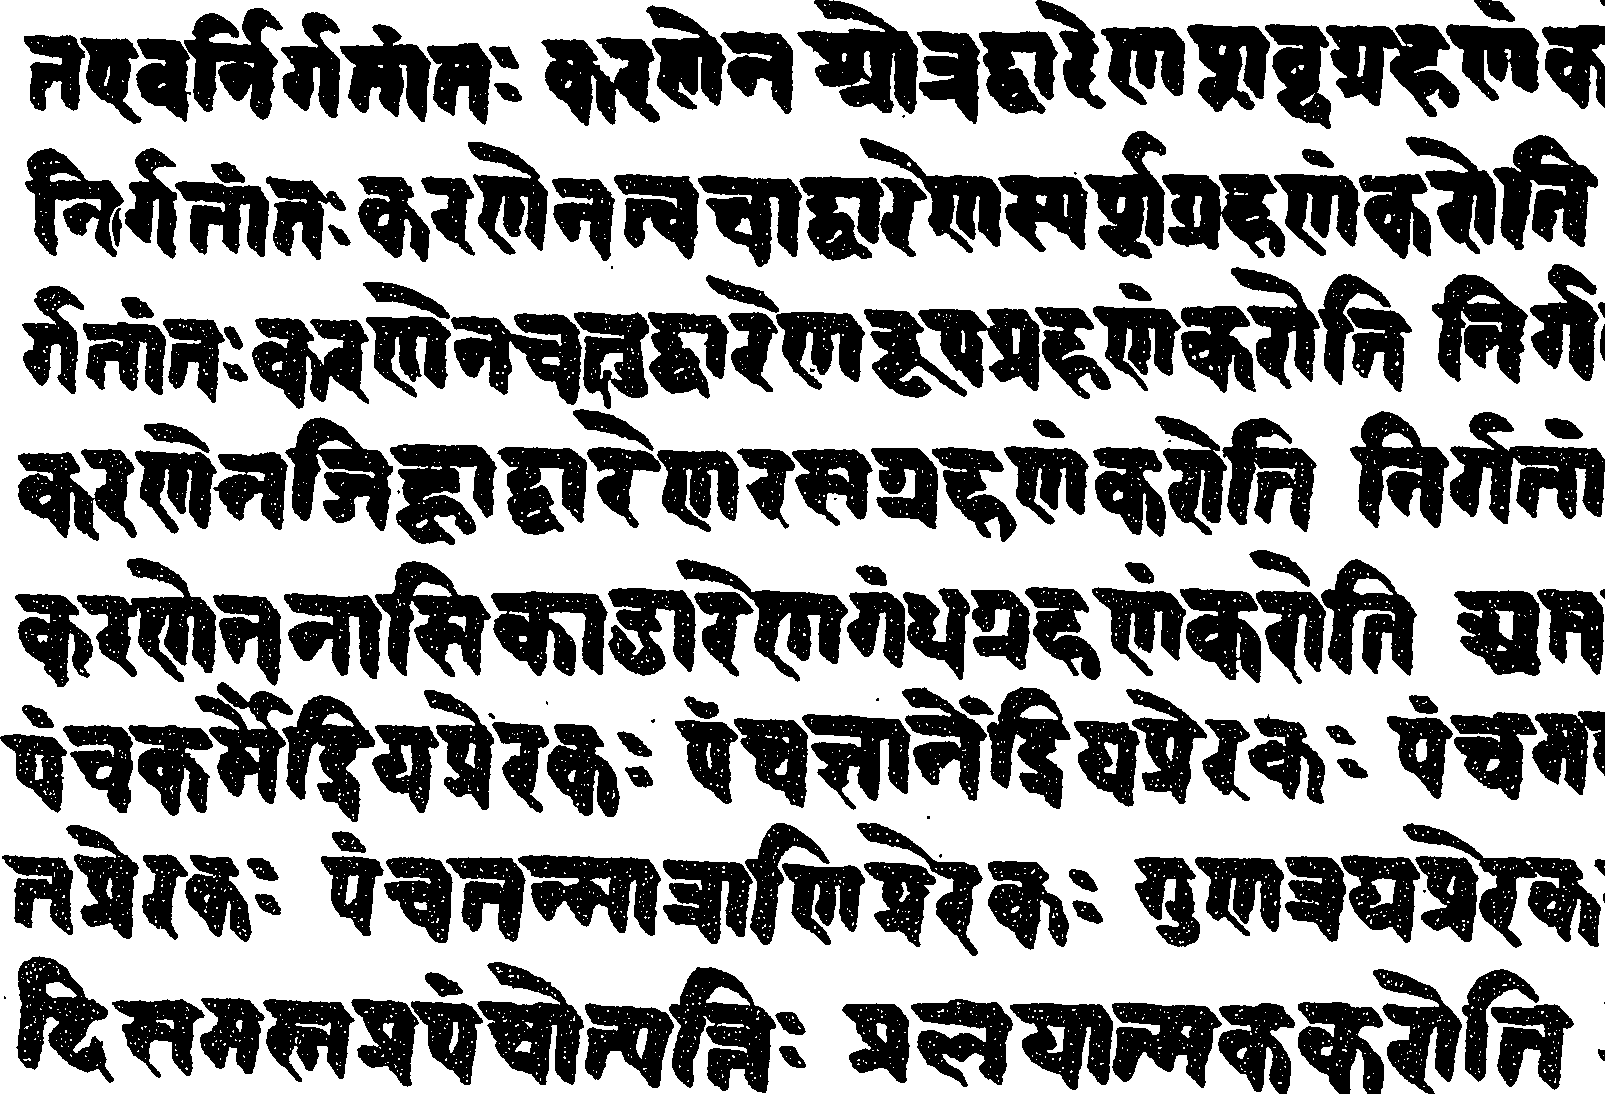 तएवनिर्गतांतः करणेन श्रोत्रद्वारेण शब्दग्रहणंक
निर्गतांतः करणेनत्वचाद्वारेणस्पर्शग्रहणंकरोति
र्गतांतःकरणेनचक्षुद्वारेणरूपग्रहणंकरोति निर्ग
करणेनजिह्वाद्वारेणरसग्रहणंकरोति निर्गतां
करणेननासिकाद्वारेणगंधग्रहणंकरोति
पंचकर्मेंद्रियप्रेरकः पंचज्ञानेंद्रियप्रेरकः पंचम
तप्रेरकः पंचतन्मात्राणिप्रेरकः गुणत्रयप्रेरक
दिसमस्तप्रपंचोत्पत्तिः प्रलयात्मककरोति